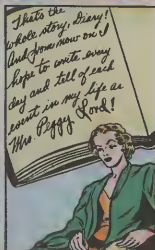 That's the
whole story, Diary!
And from now on I
hope to write every
day and tell of each
event in my life as
Mrs. Peggy Lord!